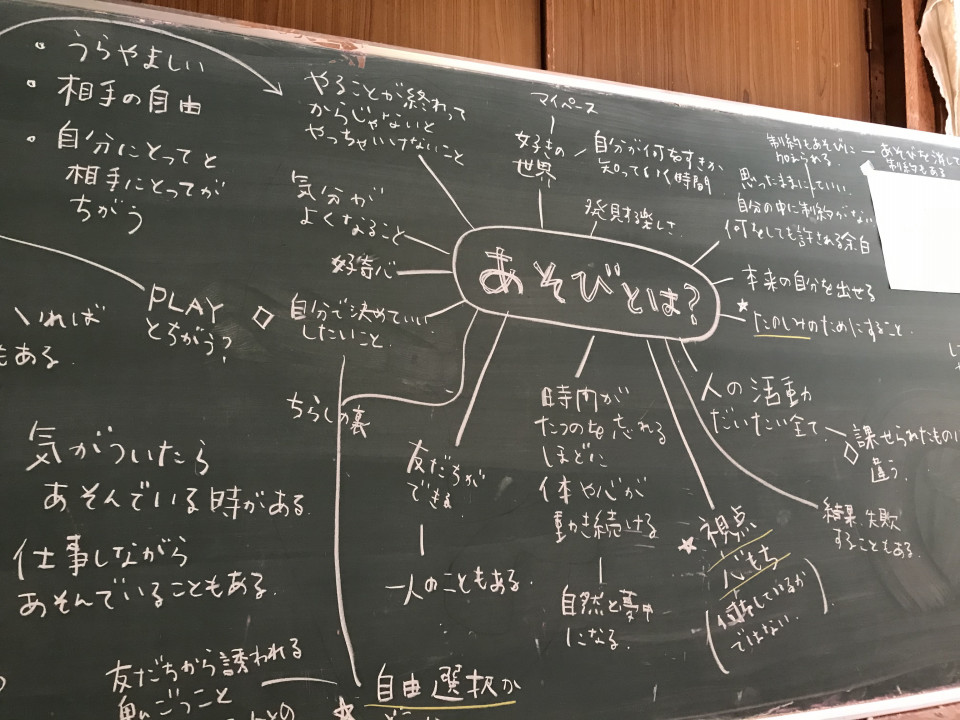 ・うらやましい
・相手の自由
・自分にとってと
相手にとってが
ちがう
PLAY
とちがう?
いれば
もある.
気がついたら
あそんでいる時がある.
仕事しながら
あそんでいることもある.
友だちから誘われる
やることが終わって
からじゃないと
やっちゃいけないこと
気分が
よくなること
好奇心
◇ 自分で決めていい
したいこと.
ちらしの裏
あそびとは?
マイペース
好きの
世界
自分が何をすきか
知っていく時間
発見する楽しさ
制約もあそびに
加えられる.
あそびを消して
制約もある
思ったままにしていい.
自分の中に制約がない
何をしても許される余白
本来の自分を出せる
★ たのしみのためにすること.
人の活動
だいたい全て.
◇ 課せられたもの
違う.
結果, 失敗
することもある.
友だちが
できる
一人のこともある.
時間が
たつのを忘れる
ほどに
体や心が
動き続ける
自然と夢中
になる.
★ 視点
心もち
(何をしているか
ではない.)
★ 自由選択か